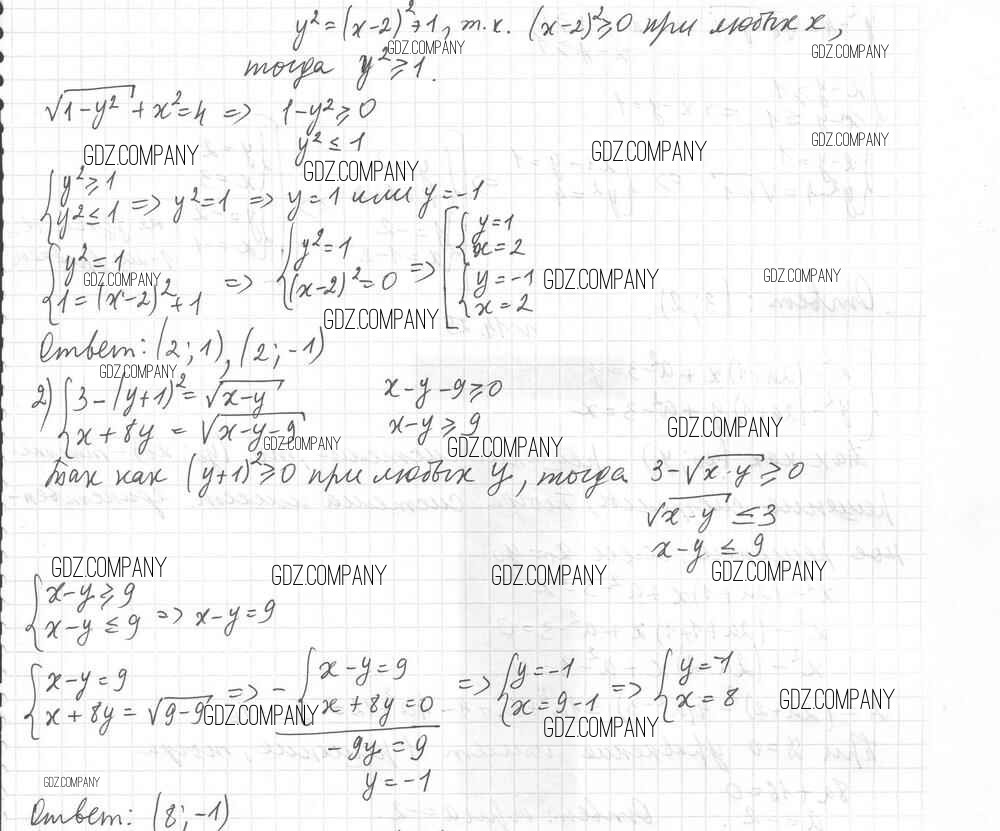 y² = (x-2)² + 1, т.к. (x-2)² ≥ 0 при любых x,
GDZ.COMPANY GDZ.COMPANY
тогда y² ≥ 1.
√(1-y²) + x² = 4 => 1-y² ≥ 0
GDZ.COMPANY
y² ≤ 1
GDZ.COMPANY GDZ.COMPANY GDZ.COMPANY
{ y² ≥ 1
{ y² ≤ 1 => y² = 1 => y = 1 или y = -1
{ y² = 1
{ 1 = (x-2)² + 1 => { y² = 1 { (x-2)² = 0 => [ { y = 1 { x = 2 { y = -1 { x = 2
GDZ.COMPANY GDZ.COMPANY GDZ.COMPANY
GDZ.COMPANY
Ответ: (2; 1), (2; -1)
GDZ.COMPANY
2) { 3 - (y+1)² = √(x-y) x-y-9 ≥ 0
{ x + 8y = √(x-y-9) x-y ≥ 9
GDZ.COMPANY GDZ.COMPANY GDZ.COMPANY
Так как (y+1)² ≥ 0 при любых y, тогда 3 - √(x-y) ≥ 0
√(x-y) ≤ 3
x-y ≤ 9
GDZ.COMPANY GDZ.COMPANY GDZ.COMPANY GDZ.COMPANY
{ x-y ≥ 9
{ x-y ≤ 9 => x-y = 9
{ x-y = 9
{ x + 8y = √(9-9) => - { x-y = 9 { x + 8y = 0 => { y = -1 { x = 9-1 => { y = -1 { x = 8
GDZ.COMPANY GDZ.COMPANY GDZ.COMPANY
-9y = 9
y = -1
GDZ.COMPANY
Ответ: (8; -1)